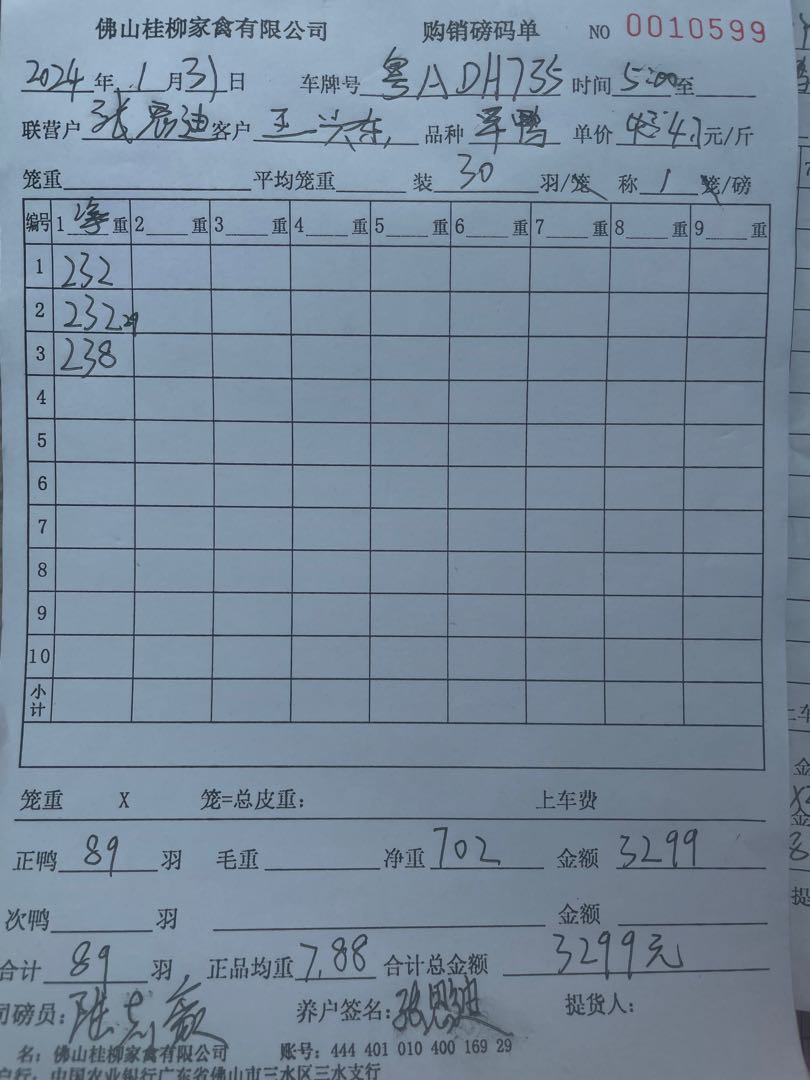 佛山桂柳家禽有限公司 购销磅码单 NO 0010599
2024年1月31日 车牌号 粤ADH735 时间 5:00 至
联营户 张恩迪 客户 王兴东 品种 单价 4.7元/斤
笼重 平均笼重 装 30 羽/笼 称 1 笼/磅
编号 1 净 重 2 重 3 重 4 重 5 重 6 重 7 重 8 重 9 重
1 232
2 232 29
3 238
4
5
6
7
8
9
10
小计
笼重 X 笼=总皮重: 上车费
正鸭 89 羽 毛重 净重 702 金额 3299
次鸭 羽 金额
合计 89 羽, 正品均重 7.88 合计总金额 3299元
司磅员: 养户签名: 张恩迪 提货人:
名: 佛山桂柳家禽有限公司 账号: 444 401 010 400 169 29
户行: 中国农业银行广东省佛山市三水区三水支行